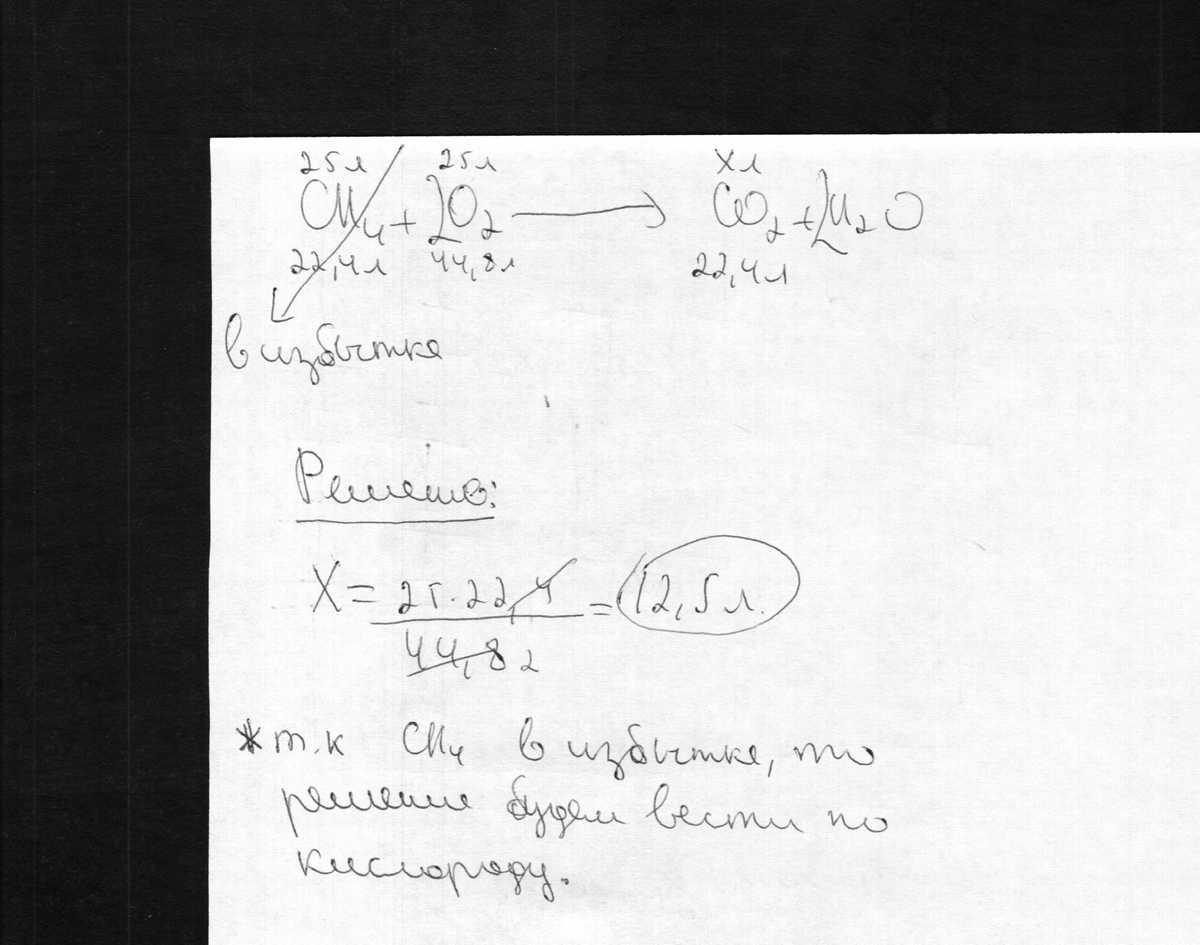 25л 25л Xл
CH4 + 2O2 → CO2 + 2H2O
22,4л 44,8л 22,4л
в избытке
Решение:
X = 25·22,4 = 12,5 л.
44,8 2
* т.к CH4 в избытке, то
решение будем вести по
кислороду.